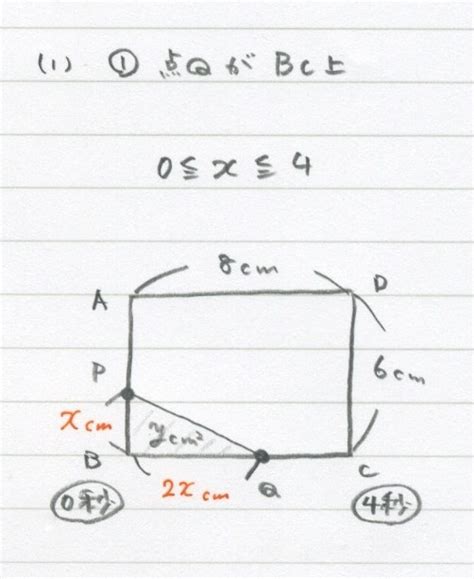 (1) ① 点Q が BC上
0 ≦ x ≦ 4
8cm
A
D
P
6cm
xcm
ycm²
B
2xcm
Q
C
0秒
4秒